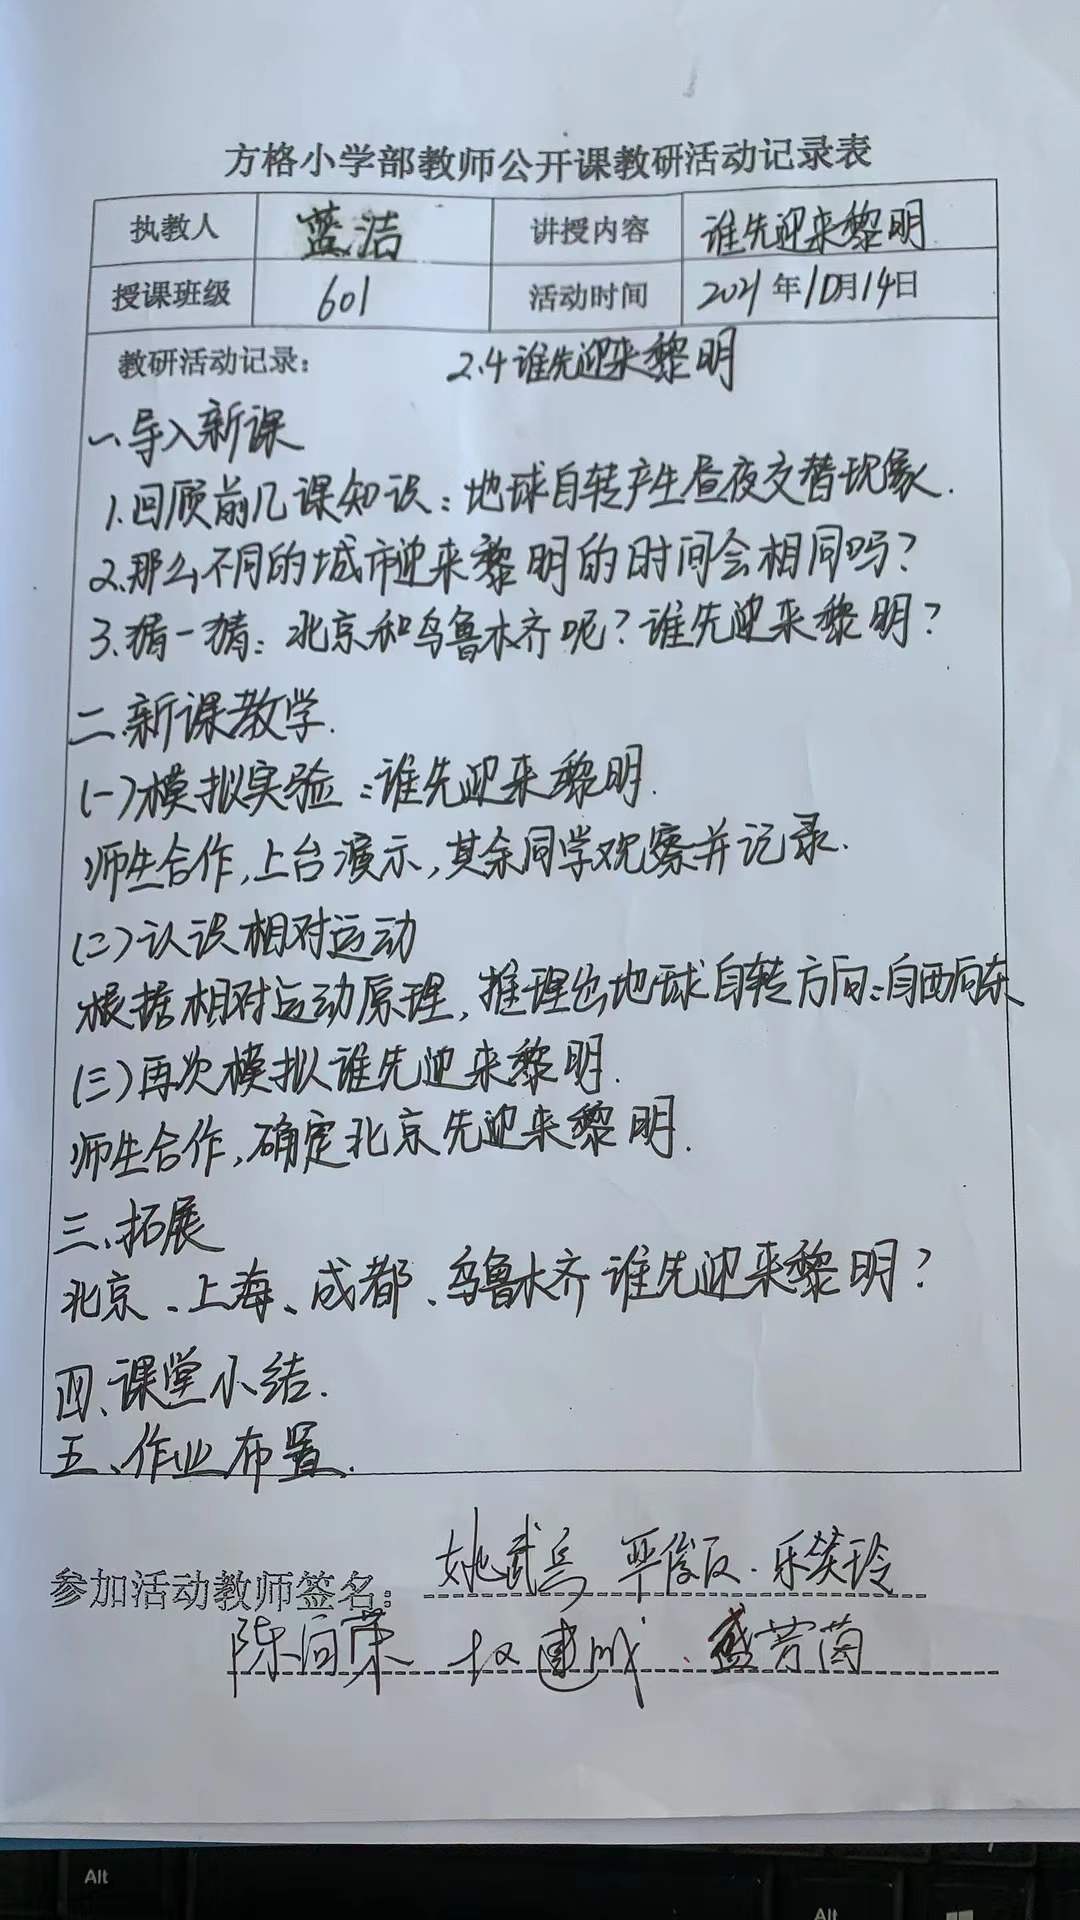 方格小学部教师公开课教研活动记录表
执教人 蓝洁 讲授内容 谁先迎来黎明
授课班级 601 活动时间 2021年10月14日
教研活动记录: 2.4谁先迎来黎明
一、导入新课
1.回顾前几课知识:地球自转产生昼夜交替现象.
2.那么不同的城市迎来黎明的时间会相同吗?
3.猜一猜:北京和乌鲁木齐呢?谁先迎来黎明?
二.新课教学.
(一)模拟实验:谁先迎来黎明.
师生合作,上台演示,其余同学观察并记录.
(二)认识相对运动
根据相对运动原理,推理出地球自转方向:自西向东
(三)再次模拟谁先迎来黎明.
师生合作,确定北京先迎来黎明.
三、拓展
北京、上海、成都、乌鲁木齐谁先迎来黎明?
四、课堂小结.
五、作业布置.
参加活动教师签名: 姚武兵 乐笑玲
盛芳茵
Alt
Alt